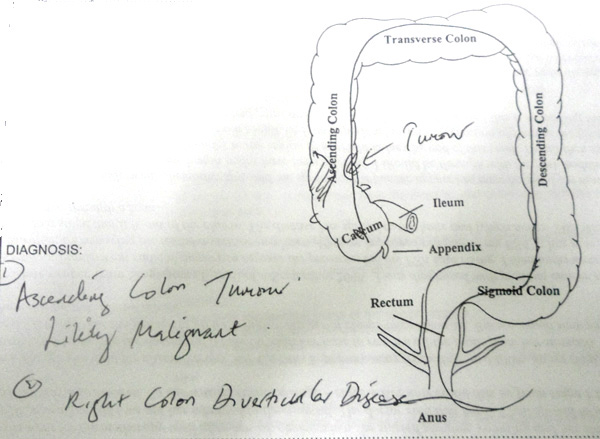 Transverse Colon
Ascending Colon
Descending Colon
Tumour
Ileum
Caecum
Appendix
DIAGNOSIS:
1
Ascending Colon Tumour
Likely Malignant
Rectum
Sigmoid Colon
2
Right Colon Diverticular Disease
Anus